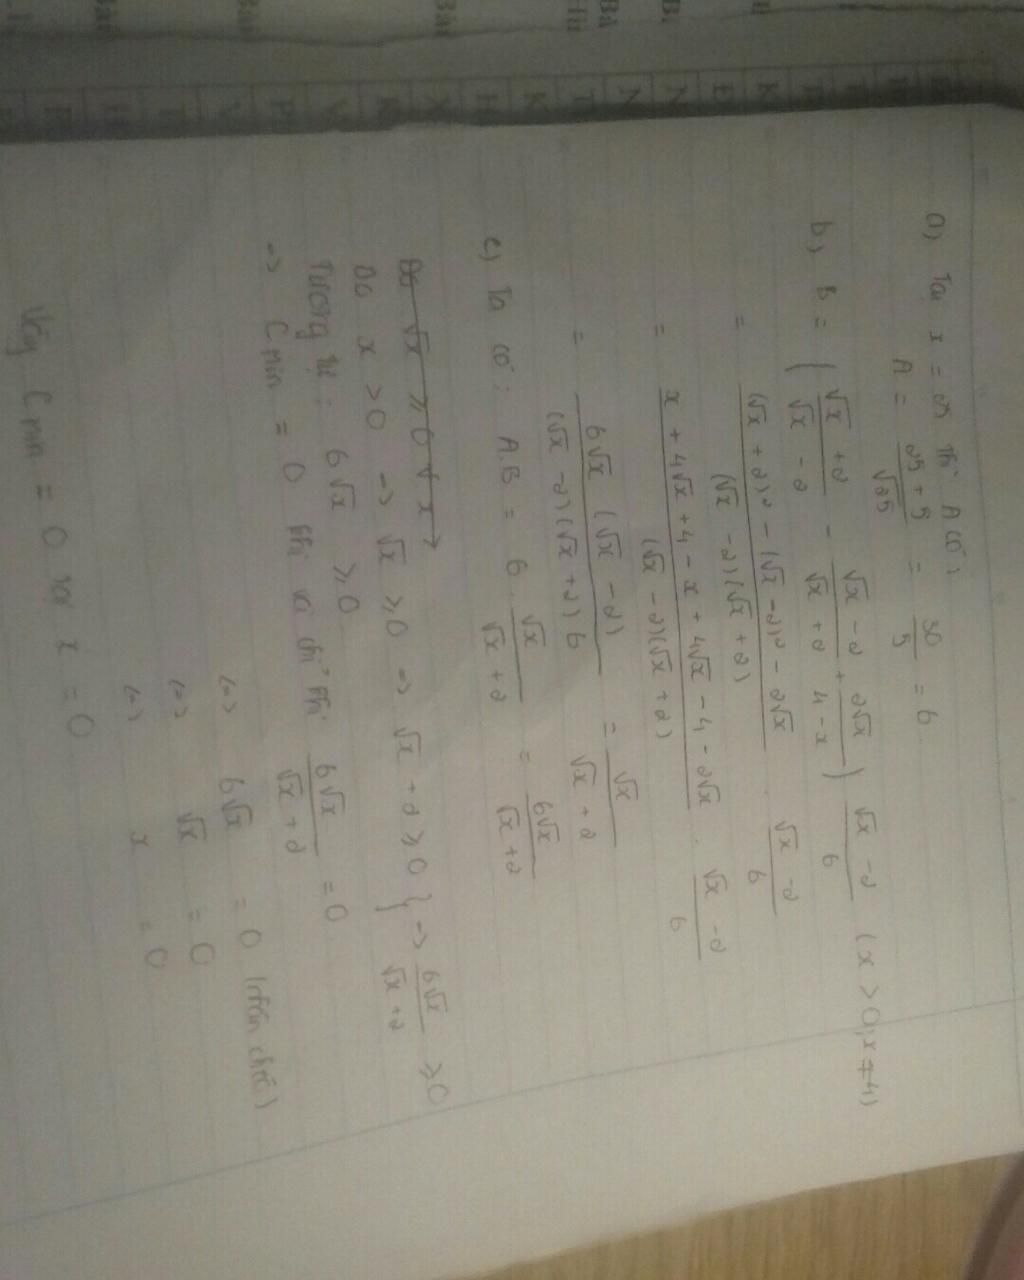 a) Tại x = 25 thì A có:
A = (25 + 5)/√25 = 30/5 = 6
b) B = ((√x + 2)/(√x - 2) - (√x - 2)/(√x + 2) + 2√x/(4 - x)) (√x - 2)/6 (x > 0; x ≠ 4)
= ((√x + 2)² - (√x - 2)² - 2√x)/((√x - 2)(√x + 2)) . (√x - 2)/6
= (x + 4√x + 4 - x + 4√x - 4 - 2√x)/((√x - 2)(√x + 2)) . (√x - 2)/6
= 6√x (√x - 2)/((√x - 2)(√x + 2) 6) = √x/(√x + 2)
c) Ta có: A.B = 6 . √x/(√x + 2) = 6√x/(√x + 2)
Do √x ≥ 0 ∀ x →
Do x > 0 => √x ≥ 0 => √x + 2 ≥ 0 } => 6√x/(√x + 2) ≥ 0
Tương tự: 6√x ≥ 0
=> C min = 0 khi và chỉ khi 6√x/(√x + 2) = 0
(=) 6√x = 0 (nhân chéo)
(=) √x = 0
(=) x = 0
Vậy C min = 0 x = 0